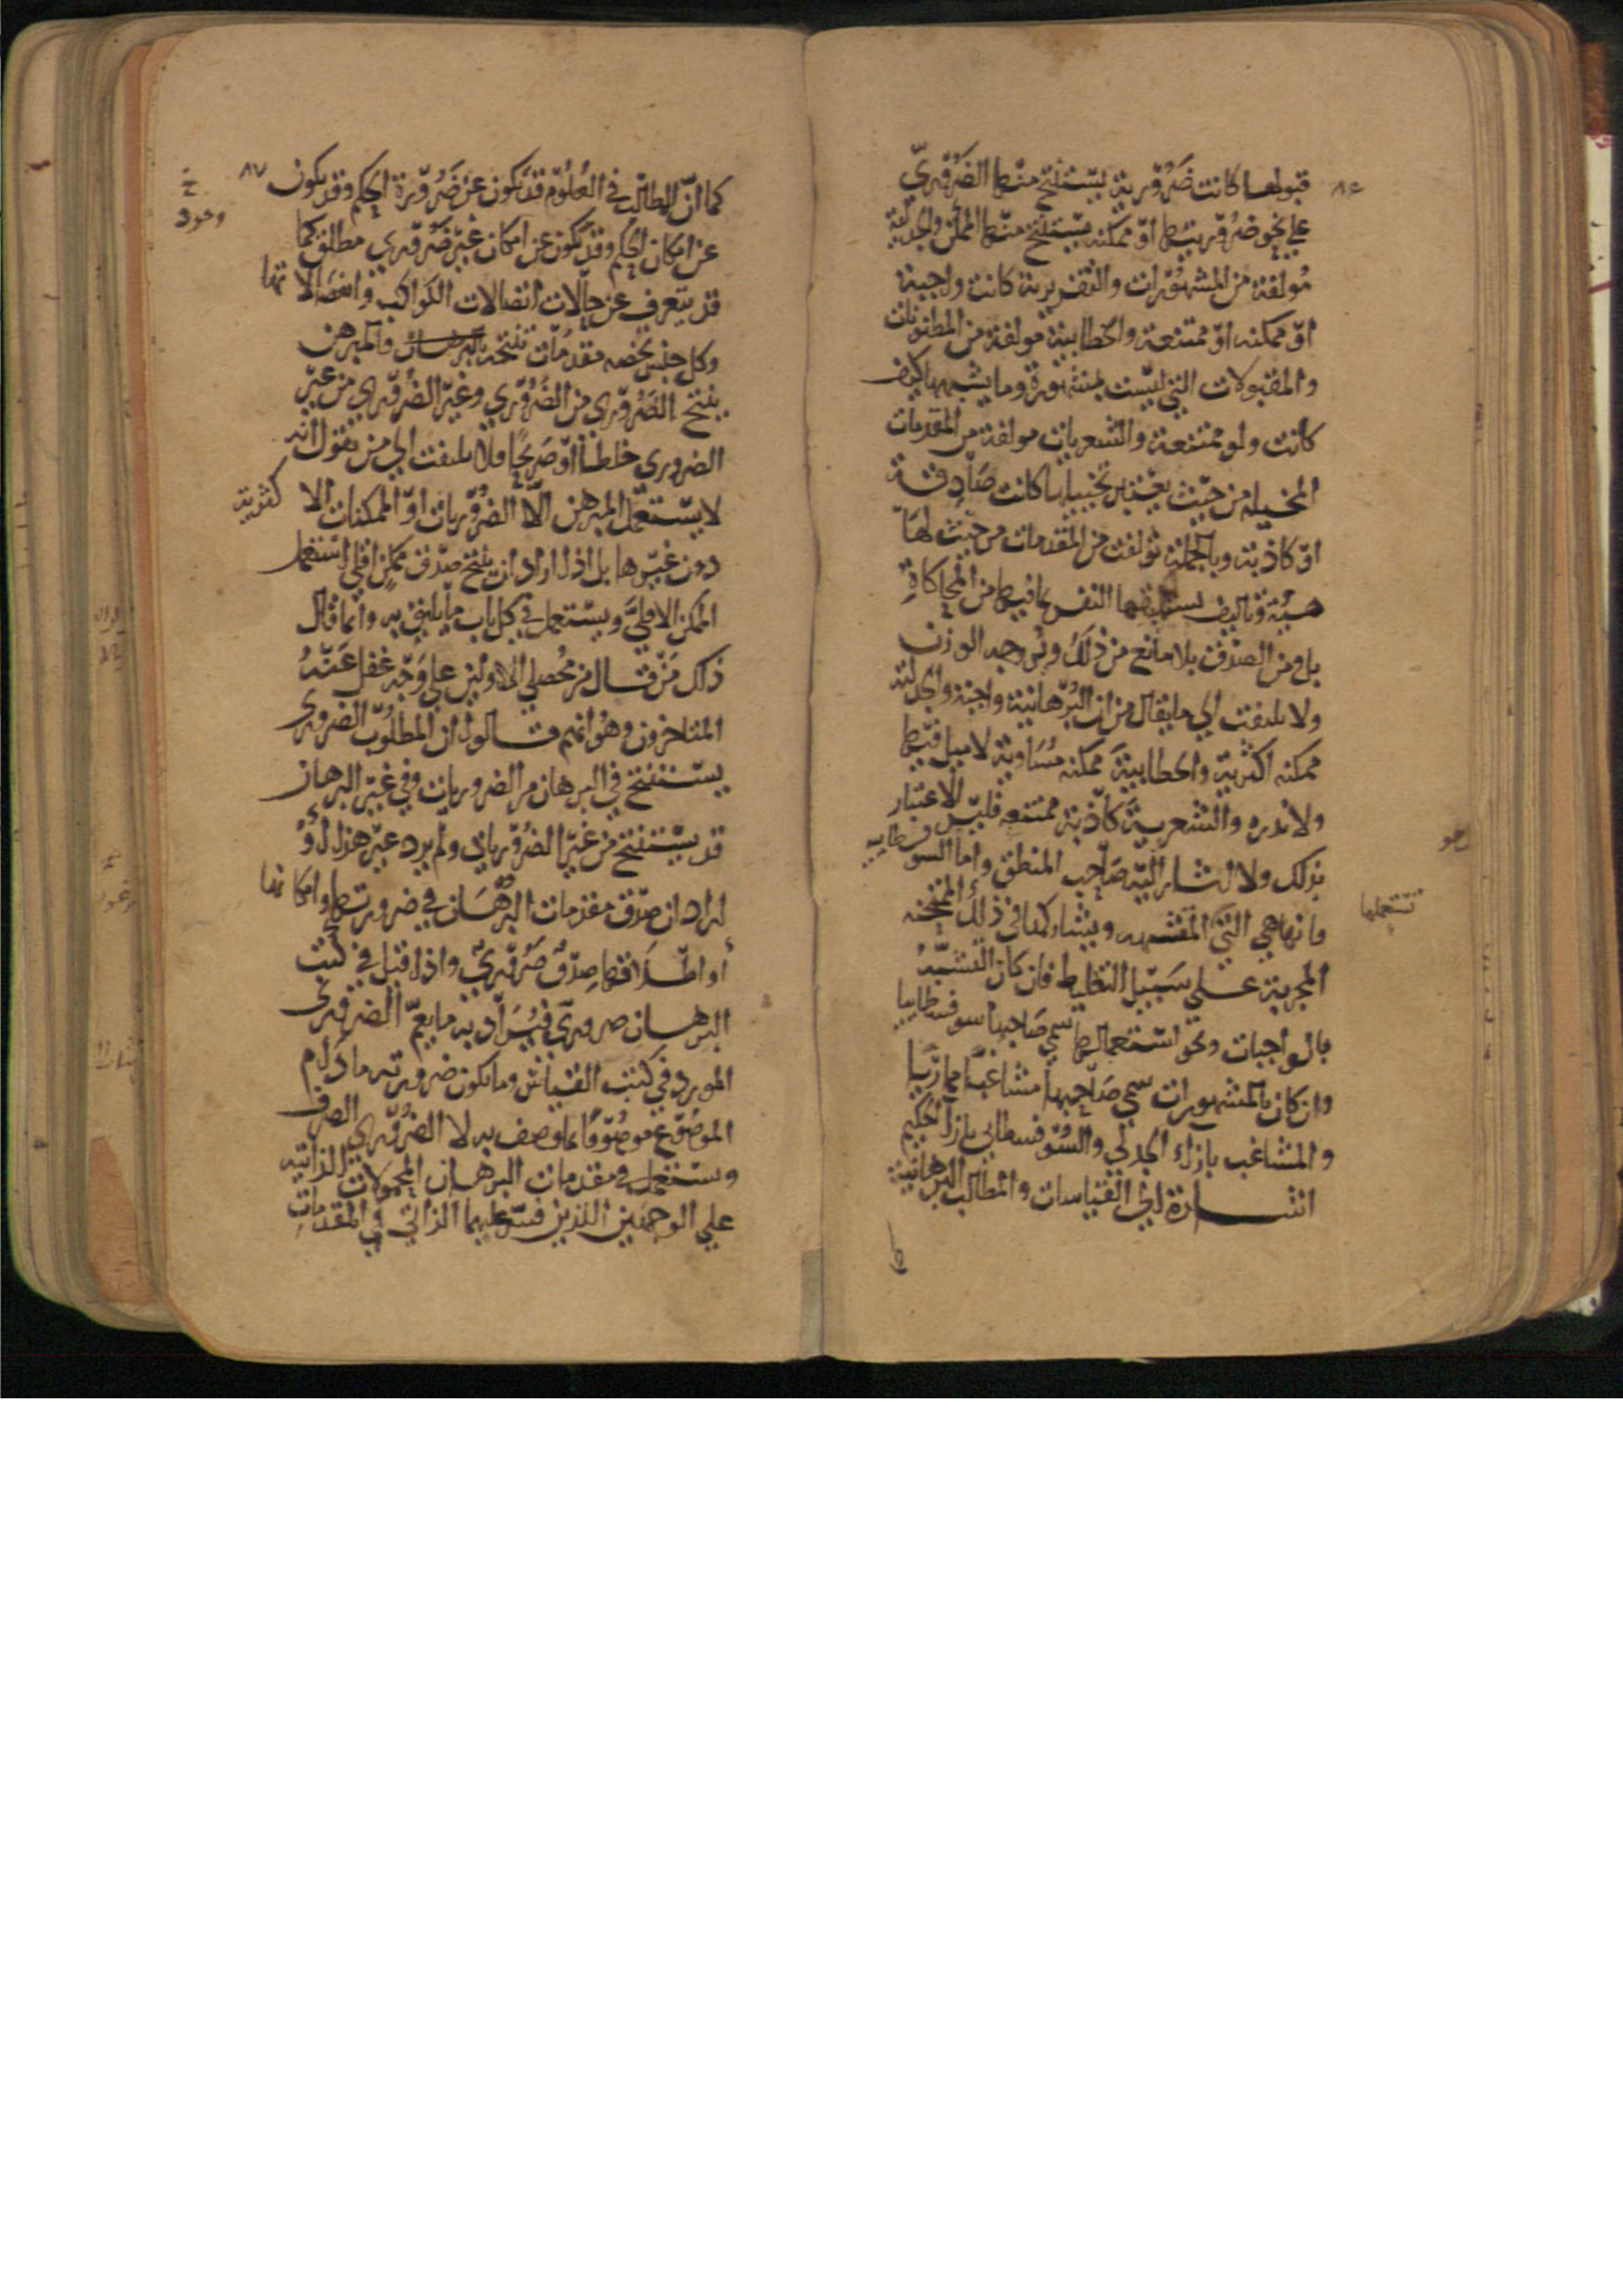 ٨٦
قبولها كانت ضرورية يستنتج منها الضروري
علي نحو ضروريتها او ممكنه يستنتج منها الممكن والجدلية
مولفة من المشهورات والتقريرية كانت واجبة
او ممكنه او ممتنعة والخطابية مولفة من المظنونات
والمقبولات التي ليست بمشهورة وما يشبهها كيف
كانت ولو ممتنعة والشعريات مولفة من المقدمات
المخيله من حيث يعتبر تخييلها كانت صادقة
او كاذبة وبالجملة تولفت من المقدمات من حيث لها
هيئة وتاليف تستقبلها النفس بما فيها من المحاكاة
بل ومن الصدق بلا مانع من ذلك وتروجه الوزن
ولا يلتفت الي ما يقال من ان البرهانية واجبة والجدلية
ممكنه اكثرية والخطابية ممكنه مساوية لا ميل فيها
ولا ندره والشعرية كاذبة ممتنعه فليس الاعتبار
بذلك ولا اشار اليه صاحب المنطق واما السوفسطاييه
فانها هي التي المشبهه ويشاركها في ذلك الممتحنه
تستعملها
المجربة علي سبيل التغليط فان كان التشبيه
بالواجبات ونحو استعمالها سمي صاحبها سوفسطاييا
وان كان بالمشهورات سمي صاحبها مشاغبا مماريا
والمشاغب بازاء الجدلي والسوفسطاي بازاء الحكيم
اشارة الي القياسات والمطالب البرهانية
كما
٨٧
كما ان المطالب في العلوم قد تكون عن ضرورة الحكم وقد يكون
عن امكان الحكم وقد تكون عن امكان غير ضروري مطلق كما
وجود
قد يتعرف عن حالات اتصالات الكواكب وانفصالاتها
وكل جنس تخصه مقدمات تنتجه فالمبرهن
ينتج الضروري من الضروري وغير الضروري من غير
الضروري خلطا او صريحا فلا يلتفت الي من يقول انه
لا يستعمل المبرهن الا الضروريات او الممكنات الاكثرية
دون غيرها بل اذا اراد ان ينتج صدق ممكن اقلي استعمل
الممكن الاقلي ويستعمل في كل باب ما يليق به وانما قال
ذلك من قال من محصلي الاولين علي وجه غفل عنه
المتاخرون وهو انهم قالوا ان المطلوب الضروري
يستنتج في البرهان من الضروريات وفي غير البرهان
قد يستنتج من غير الضروريات ولم يرد غير هذا او
اراد ان صدق مقدمات البرهان في ضرورتها وامكانها
او اطلاقها صدق ضروري واذا قيل في كتب
البرهان ضروري فيراد به ما يعم الضروري
المورد في كتب القياس وما يكون ضرورته ما دام
الموضوع موصوفا بما وصف به لا الضروري الصرف
وتستعمل في مقدمات البرهان المحمولات الذاتيه
علي الوجهين اللذين فسر عليهما الذاتي في المقدمات